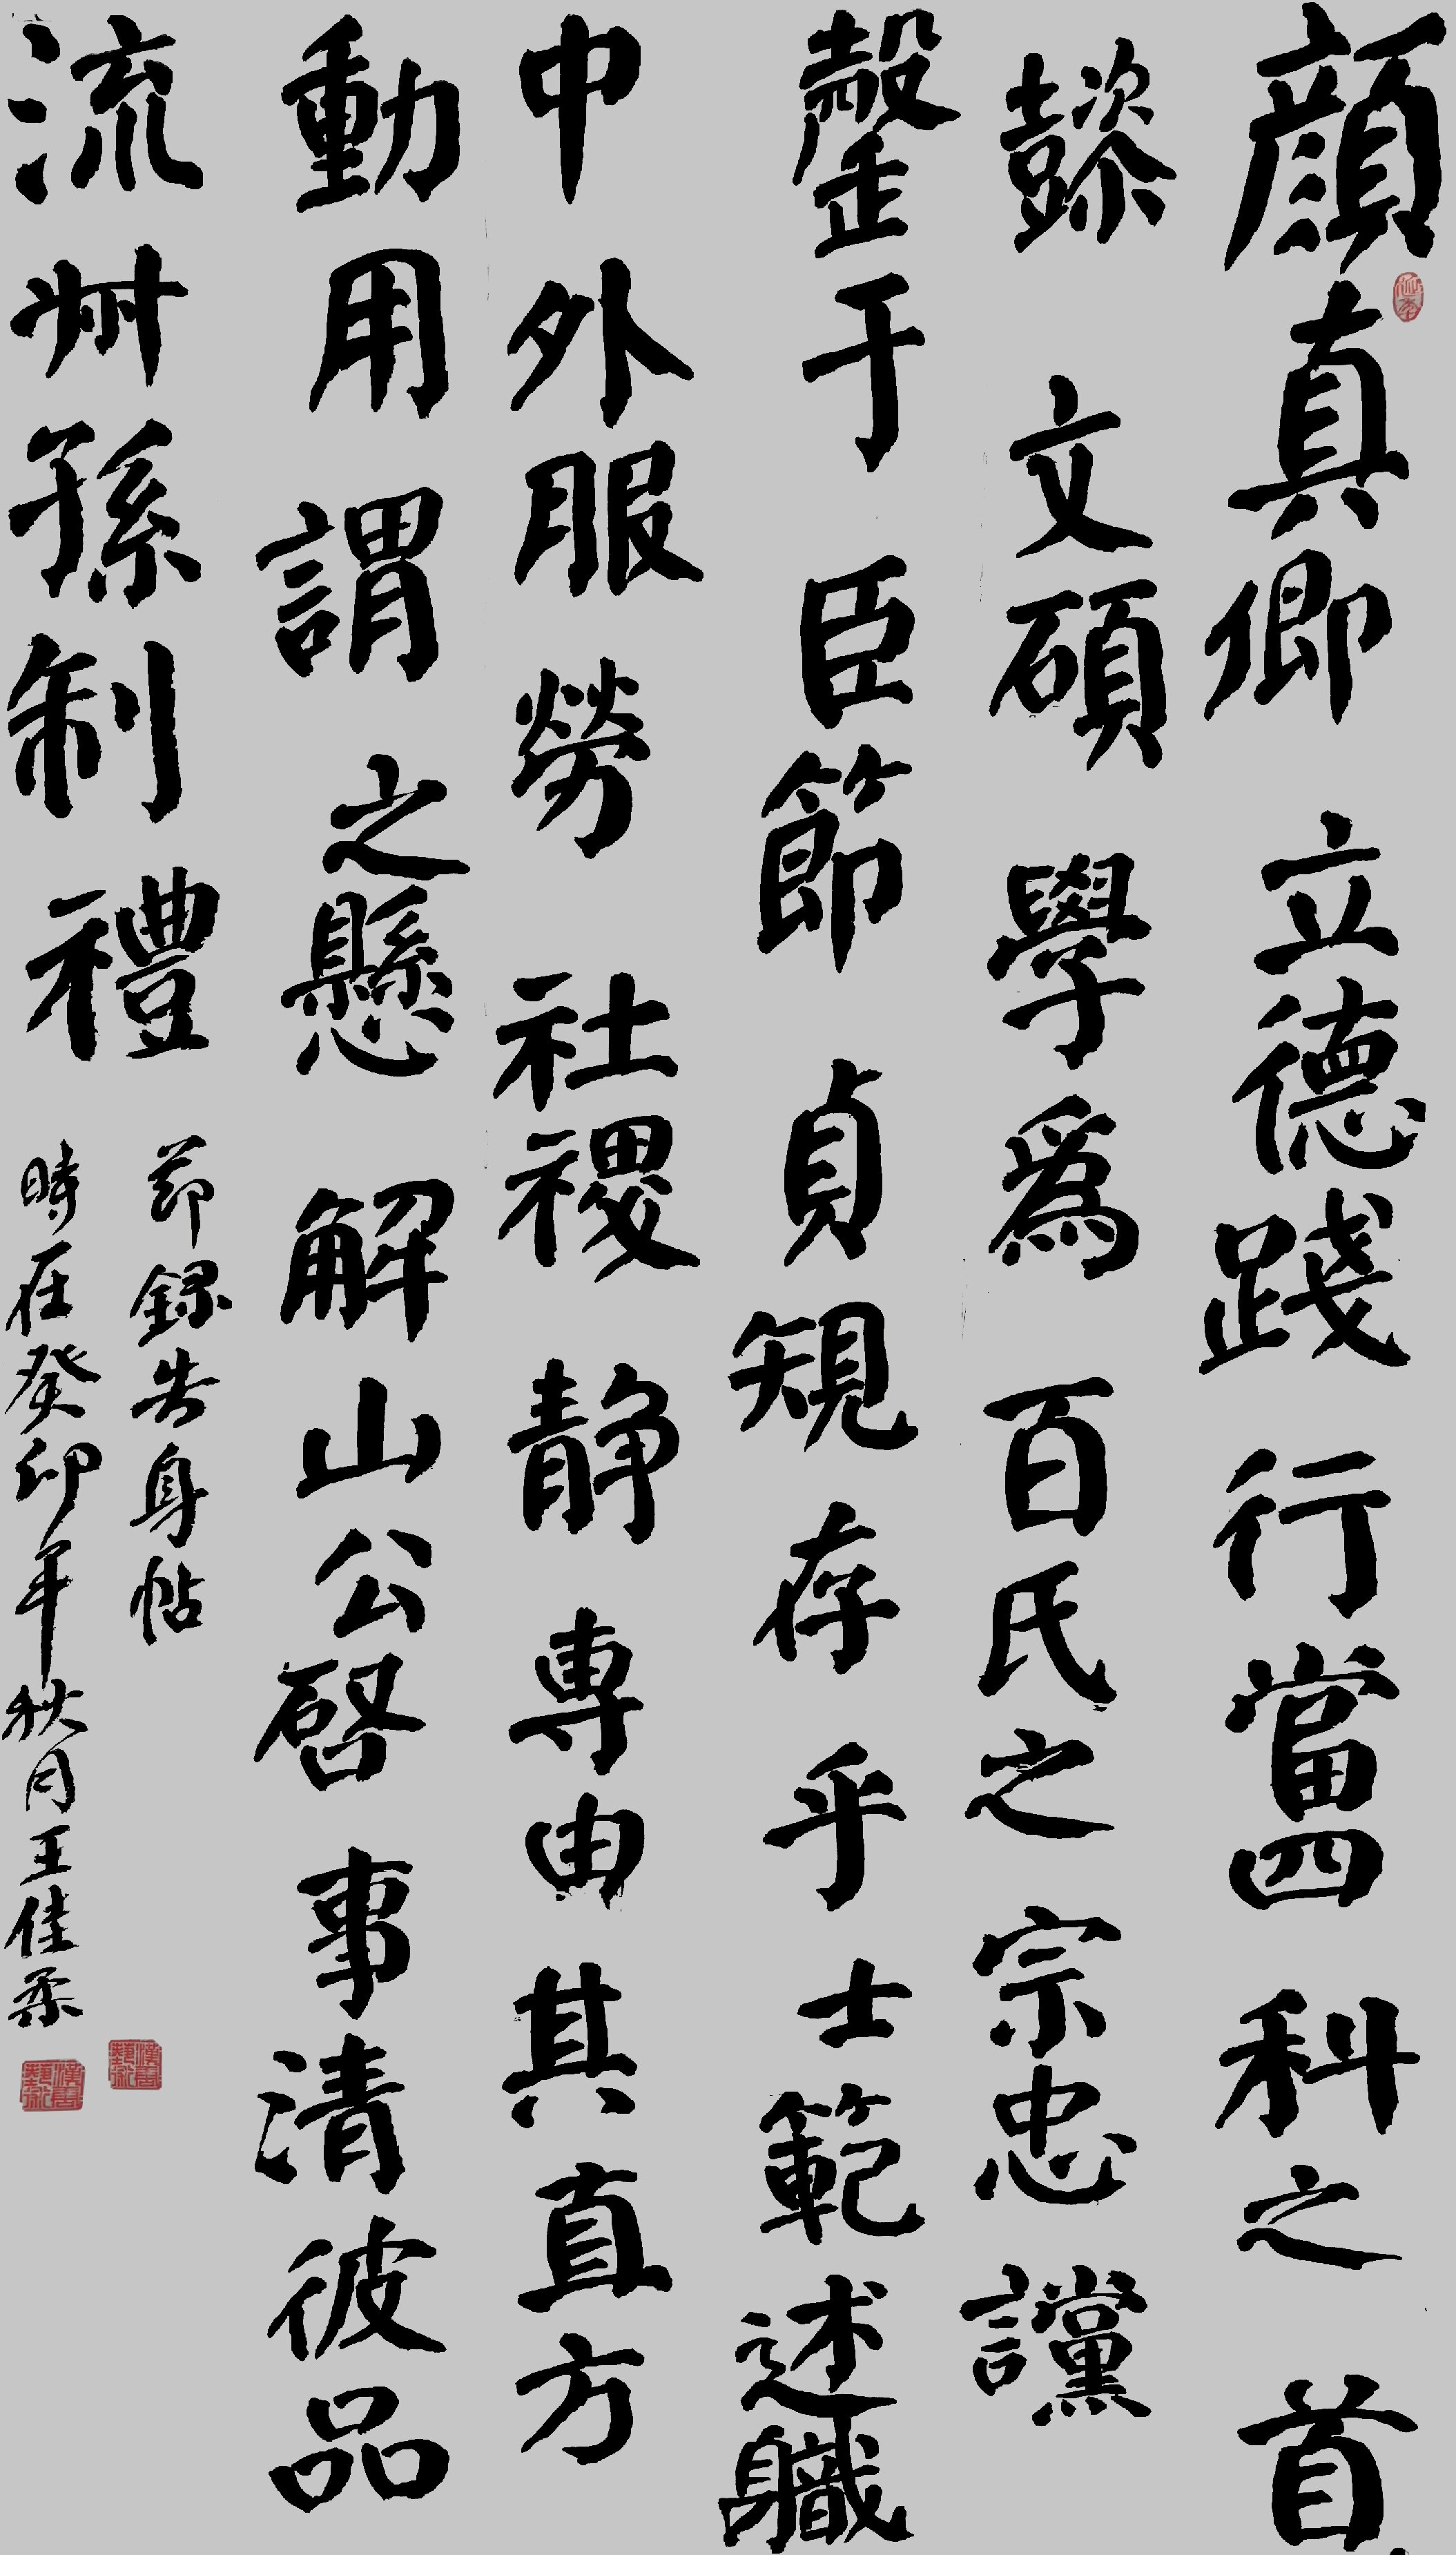 顔真卿立德踐行當四科之首
懿文碩學為百氏之宗忠讜
罄于臣節貞規存乎士範述職
中外服勞社稷静專由其直方
動用謂之懸解山公啓事清彼品
流叔孫制禮
節録告身帖
時在癸卯年秋月王佳柔